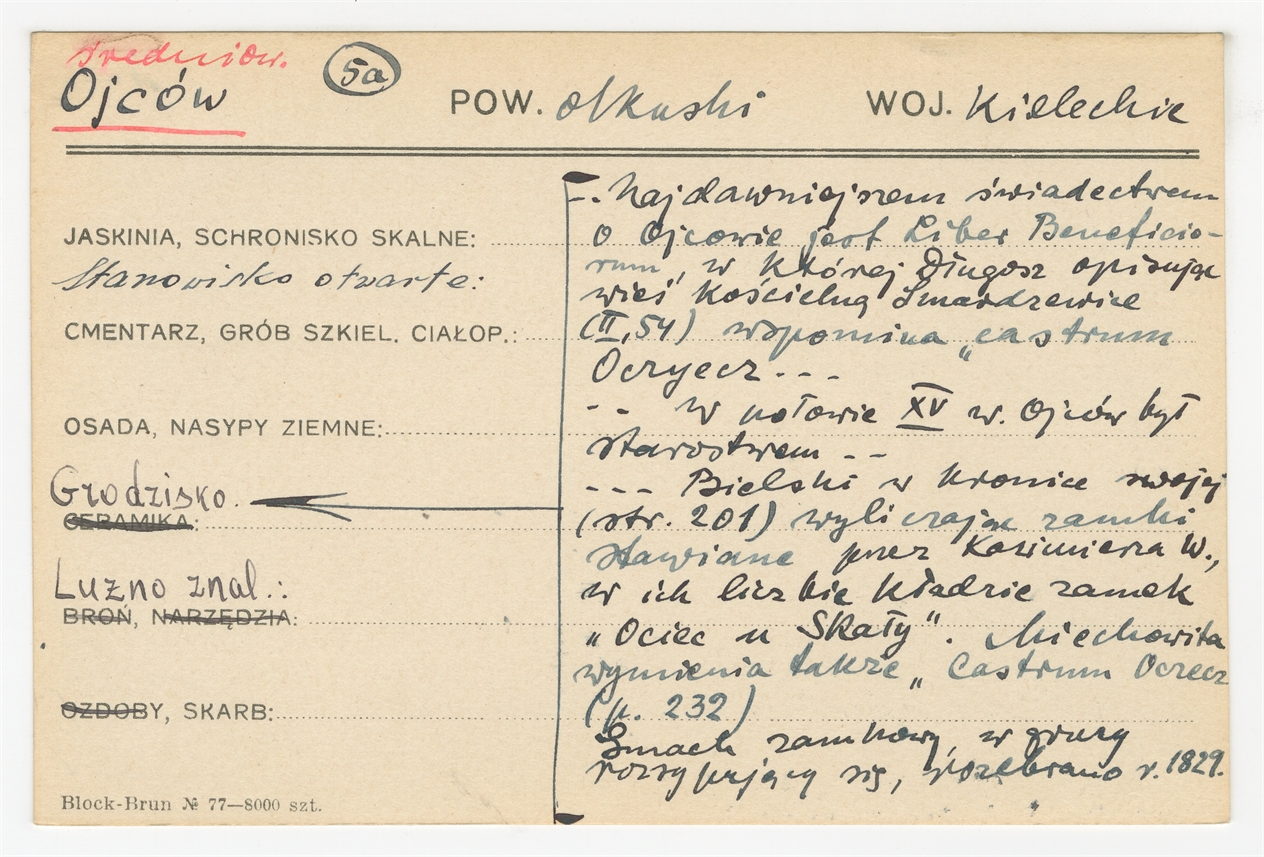 średniow.
Ojców
5a
POW. olkuski
WOJ. Kieleckie
JASKINIA, SCHRONISKO SKALNE:
Stanowisko otwarte:
CMENTARZ, GRÓB SZKIEL. CIAŁOP.:
OSADA, NASYPY ZIEMNE:
Grodzisko.
CERAMIKA:
Luźno znal.:
BROŃ, NARZĘDZIA:
OZDOBY, SKARB:
Block-Brun № 77—8000 szt.
-. Najdawniejszem świadectwem
o Ojcowie jest Liber Beneficio-
rum, w której Długosz opisując
wieś kościelną Smardzewice
(II, 54) wspomina „castrum
Oczyecz - - -
- - w połowie XV w. Ojców był
starostwem - -
- - - Bielski w kronice swojej
(str. 201) wyliczając zamki
stawiane przez Kazimierza W.,
w ich liczbie kładzie zamek
„Ociec u Skały". Miechowita
wymienia także „Castrum Oczecz
(p. 232)
Gmach zamkowy, w gruzy
rozsypujący się, rozebrano r. 1829.